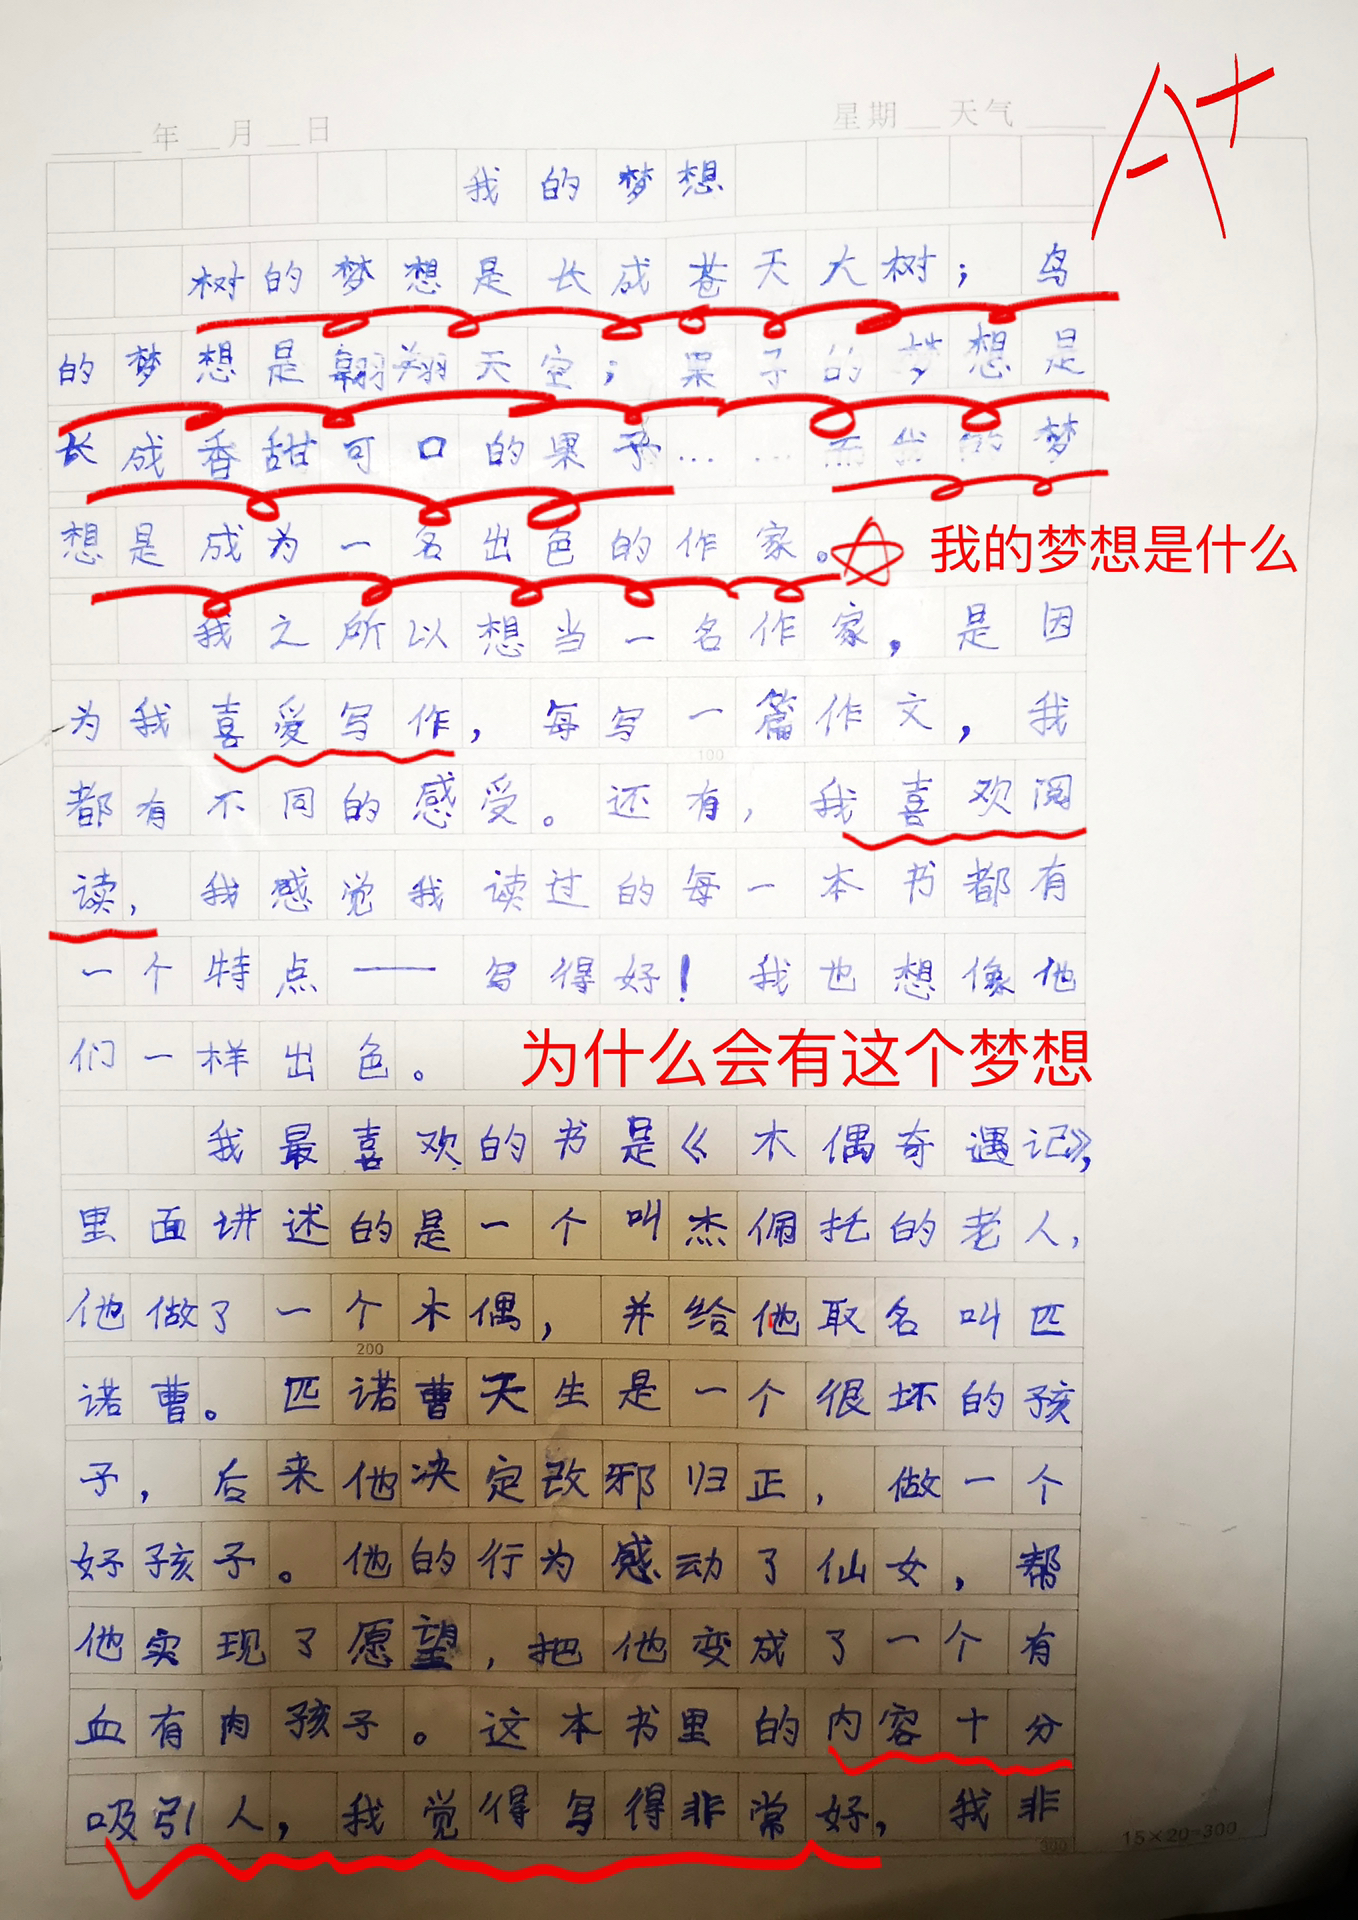 A+
年 月 日 星期 天气
我的梦想
树的梦想是长成苍天大树；鸟
的梦想是翱翔天空；果子的梦想是
长成香甜可口的果子……而我的梦
想是成为一名出色的作家。
我的梦想是什么
我之所以想当一名作家，是因
为我喜爱写作，每写一篇作文，我
100
都有不同的感受。还有，我喜欢阅
读，我感觉我读过的每一本书都有
一个特点——写得好！我也想像他
们一样出色。
为什么会有这个梦想
我最喜欢的书是《木偶奇遇记》，
里面讲述的是一个叫杰佣托的老人，
他做了一个木偶，并给他取名叫匹
200
诺曹。匹诺曹天生是一个很坏的孩
子，后来他决定改邪归正，做一个
好孩子。他的行为感动了仙女，帮
他实现了愿望，把他变成了一个有
血有肉孩子。这本书里的内容十分
吸引人，我觉得写得非常好，我非
300
15×20=300